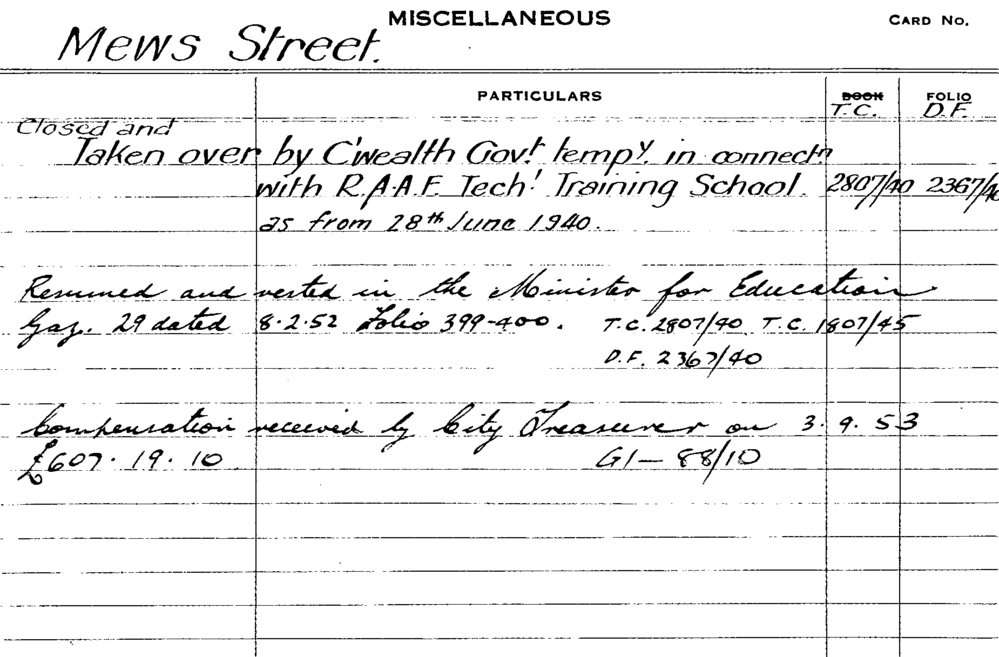 MISCELLANEOUS CARD No.
Mews Street.
PARTICULARS BOOK FOLIO
T.C. D.F.
Closed and
Taken over by C'wealth Govt. tempy. in connectn
with R.A.A.F. Techl Training School. 2807/40 2367/40
as from 28th June 1940.
Resumed and vested in the Minister for Education
Gaz. 29 dated 8.2.52 Folio 399-400. T.C. 2807/40 T.C. 1807/45
D.F. 2367/40
Compensation received by City Treasurer on 3.9.53
£607.19.10 G1-88/10